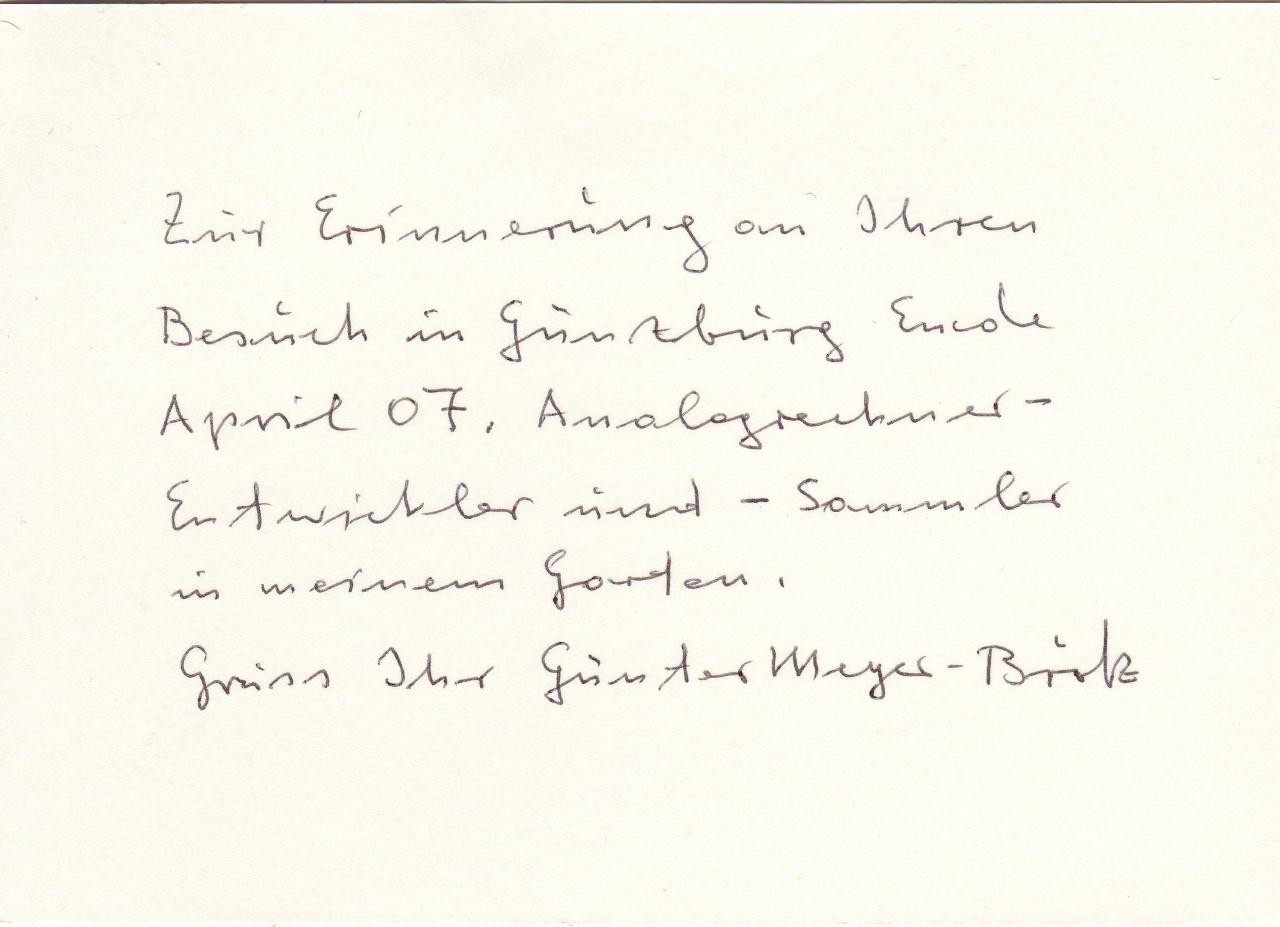 Zur Erinnerung an Ihren
Besuch in Günzburg Ende
April 07. Analogrechner-
Entwickler und - Sammler
in meinem Garten.
Gruss Ihr Günter Meyer-Brötz